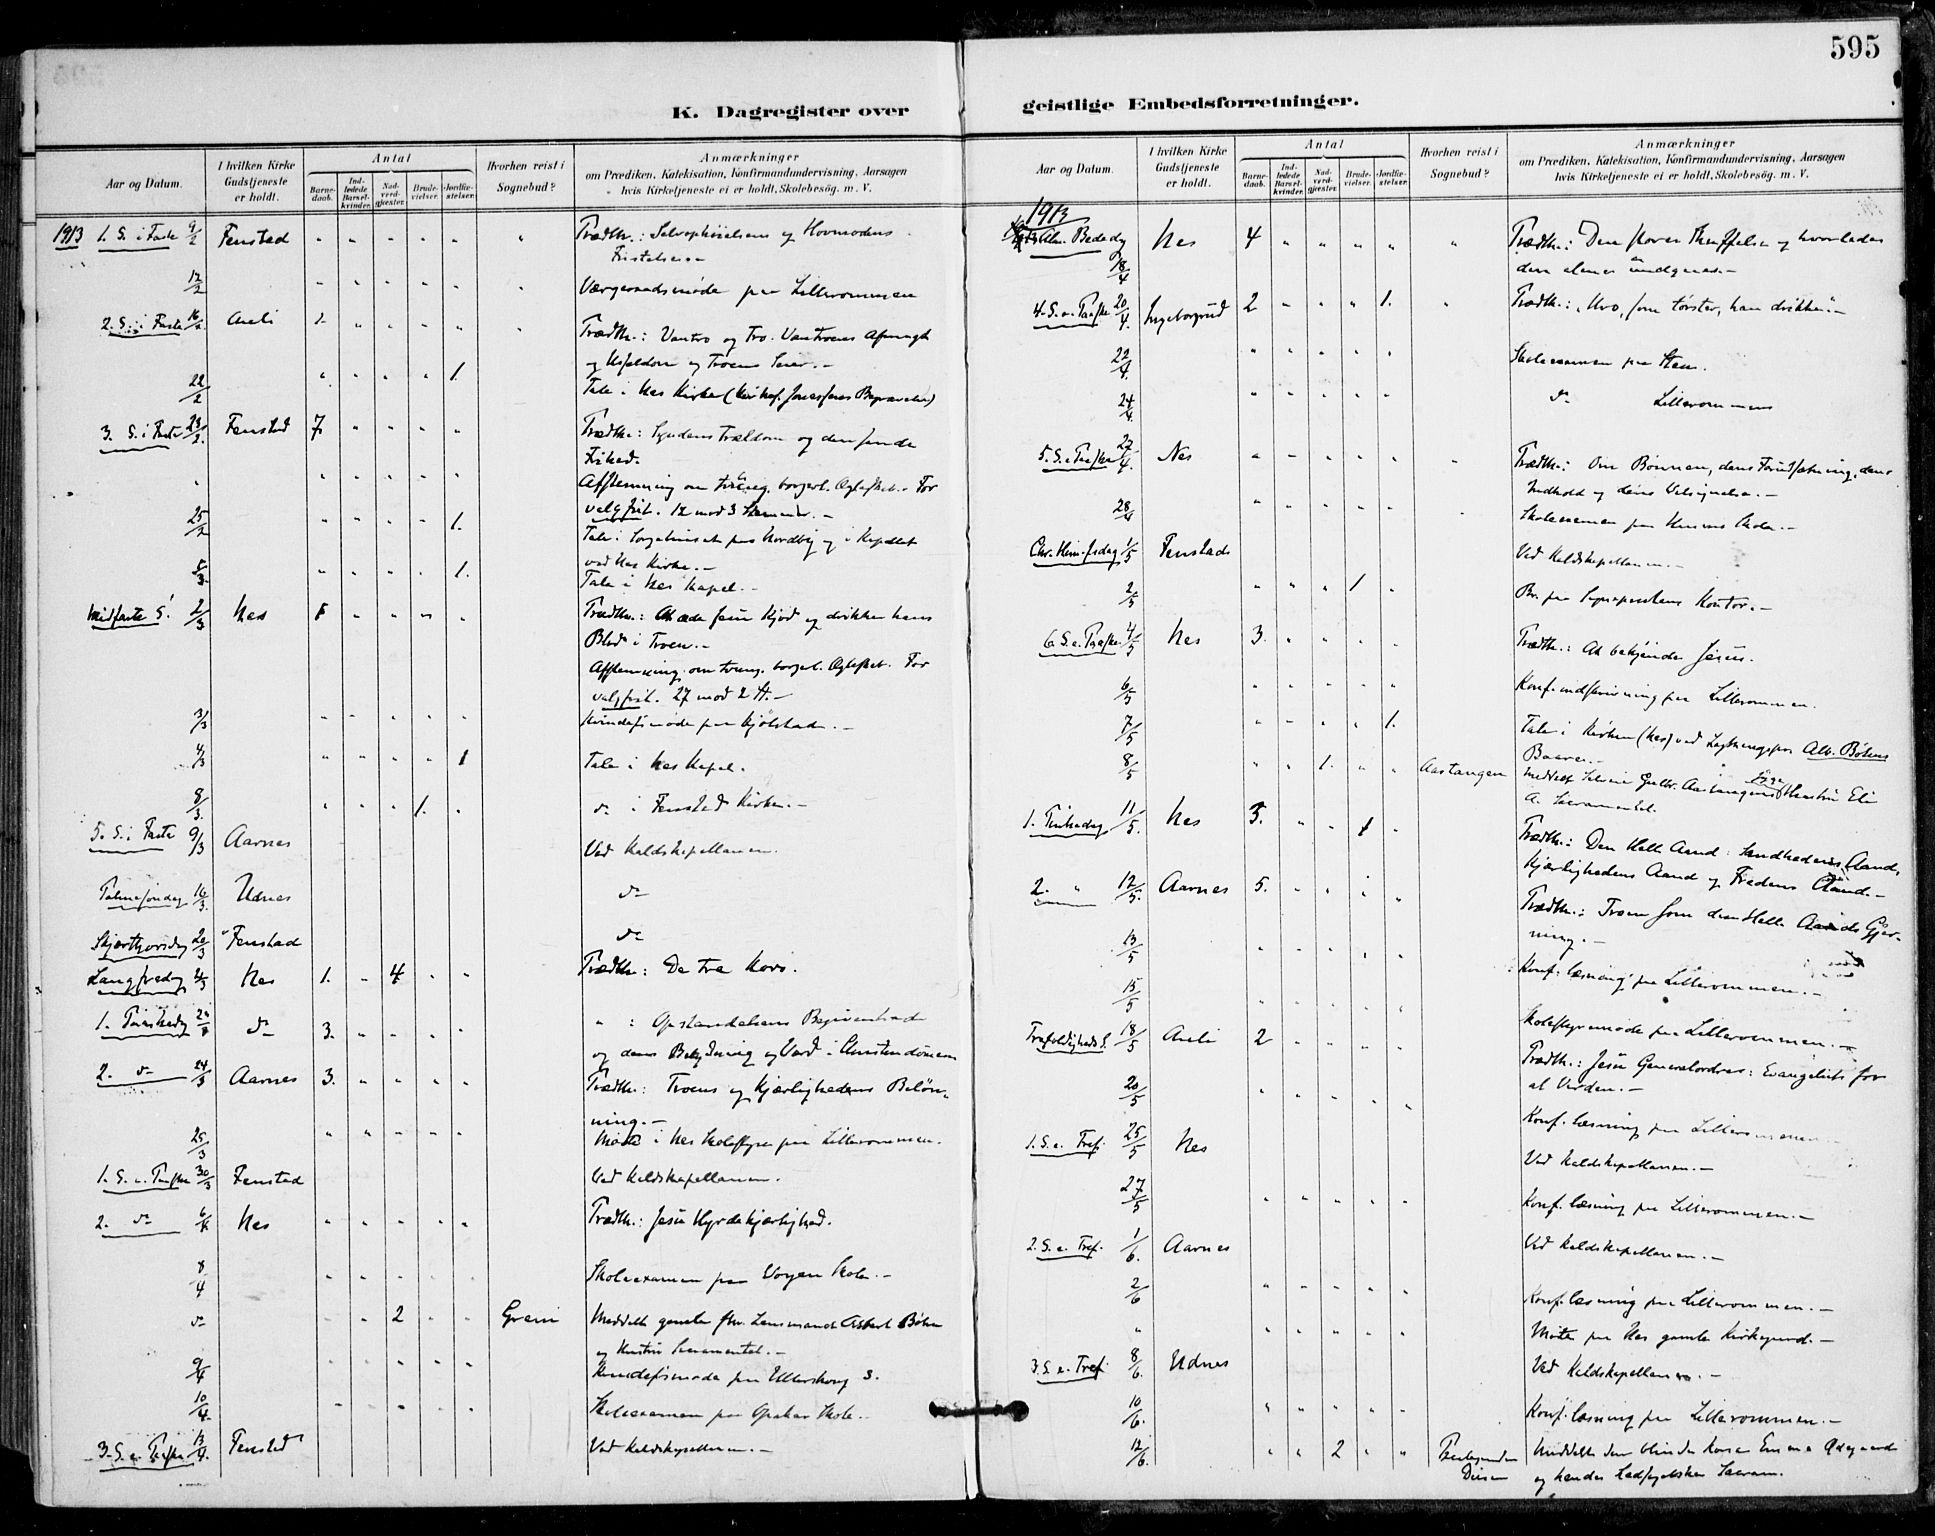 595
K. Dagregister over
Aar og Datum.
I hvilken Kirke Gudstjeneste er holdt.
Antal
Barne-daab.
Ind-ledede Barsel-kvinder.
Nad-verd-gjester.
Brude-vielser.
Jordfæ-stelser.
Hvorhen reist i Sognebud?
Anmærkninger
om Prædiken, Katekisation, Konfirmandundervisning, Aarsagen
hvis Kirketjeneste ei er holdt, Skolebesög. m. V.
1913 1. S. i Faste 9/2 Fenstad Prædtk.: Selvophøielsens og Hovmodens
Fristelser.-
12/2 Værgeraadsmøde paa Lillerommen
2. S. i Faste 16/2 Auli Prædtk.: Vantro og Tro. Vantroens Afmagt
og Troens Seier.-
22/2 1. Tale i Nes Kirke
3. S. i Faste 23/2 Fenstad 7. Prædtk.: Syndens Trældom og den sande
Frihed.
Afstemning om tvung. borgerl. Ægteskab. For
valgfrit. 12 mod 3 Stemmer.-
25/2 1. Tale i Sørgehuset paa Nordby og i Kapellet
ved Nes Kirke.-
1. Tale i Nes Kapel.-
Midfaste S. 2/3 Nes Prædtk.: At æde Jesu Kjød og drikke hans
Blod i Troen.-
Afstemning om tvung. borgerl. Ægteskab. For
valgfrit. 27 mod 2 St.-
3/3 Kvindefsmøde paa Kjølstad.-
4/3 1 Tale i Nes Kapel.
8/3 1. do i Fenstad Kirke.-
5. S. i Faste 9/3 Aarnes Ved Kaldskapellanen.
Palmesøndag 16/3 Udnes do
Skjærthorsdag 20/3 Fenstad do
Langfredag 21/3 Nes 1. 4 Prædtk.: De tre Kors.
1. Paaskedag do 3. " : Opstandelsens Begivenhed
og dens Betydning og Værd i Christendommen
2. do 24/3 Aarnes 3. Prædtk.: Troens og Kjærlighedens Beløn-
ning.-
25/3 Møde i Nes Skolestyre paa Lillerommen.
1. S. e. Paaske 30/3 Fenstad Ved Kaldskapellanen.
2. do 6/4 Nes Prædtk.: Jesu Hyrdekjærlighed.
8/4 Skoleexamen paa Vorgen Skole.-
do 2 Meddelt gamle fhv. Lensmand Albert Bøhn
og Hustru Sacramentet.-
9/4 Kvindefsmøde paa Ullershoug S.
10/4 Skoleexamen paa Opaker Skole.-
3. S. e. Paaske 13/4 Fenstad Ved Kaldskapellanen.-
geistlige Embedsforretninger.
Aar og Datum.
I hvilken Kirke Gudstjeneste er holdt.
Antal
Barne-daab.
Ind-ledede Barsel-kvinder.
Nad-verd-gjester.
Brude-vielser.
Jordfæ-stelser.
Hvorhen reist i Sognebud?
Anmærkninger
om Prædiken, Katekisation, Konfirmandundervisning, Aarsagen
hvis Kirketjeneste ei er holdt, Skolebesög. m. V.
1913
Alm. Bededag 18/4 Nes 4 Prædtk.: Den store Skuffelse og hvorledes
den alene undgaaes.-
4. S. e. Paaske 20/4 Ingeborgrud 2 1. Prædtk.: "Hvo, som tørster, han drikke".-
22/4 Skoleexamen paa Steen.
24/4 do Lillerommen
5. S. e. Paaske 27/4 Nes Prædtk.: Om Bønnen, dens Forudsætning, dens
Indhold og dens Velsignelse.-
28/4 Skoleexamen paa Skole.-
Chr. Himmelfsdag 1/5 Fenstad Ved Kaldskapellanen.-
2/5 1 Br. paa Sogneprestens Kontor.-
6. S. e. Paaske 4/5 Nes 3. Prædtk.: At bekjende Jesus.
6/5 Konf.indskrivning paa Lillerommen.
7/5 1. Tale i Kirken (Nes) ved Alb. Bøhns
Baare.-
8/5 1. Aastangen Meddelt Gulbr. Aastangens syge Hustru Eli
A. Sacramentet.
1. Pintsedag 11/5 Nes 3. 1 Prædtk.: Den Hellig Aand: Sandhedens Aand,
Kjærlighedens Aand og Fredens Aand.-
2. " 12/5 Aarnes 5. Prædtk.: Troen som den Hellig Aands Gjer-
ning.-
13/5 Konf. læsning paa Lillerommen.-
15/5 Skolestyremøde paa Lillerommen.-
Trefoldigheds S. 18/5 Auli 2 Prædtk.: Jesu Generalordre: Evangeliet for
al Verden.-
20/5 Konf. læsning paa Lillerommen
1. S. e. Tref. 25/5 Nes Ved Kaldskapellanen.-
27/5 Konf. læsning paa Lillerommen.-
2. S. e. Tref. 1/6 Aarnes Ved Kaldskapellanen.-
2/6 Konf. læsning paa Lillerommen.-
" Møte paa Nes gamle Kirkegaard.-
3. S. e. Tref. 8/6 Udnes Ved Kaldskapellanen.-
10/6 Konf. læsning paa Lillerommen.-
12/6. 2 Meddelt den blinde Kone Emma Ødegaard
og hendes Ledsagerske Sacram.